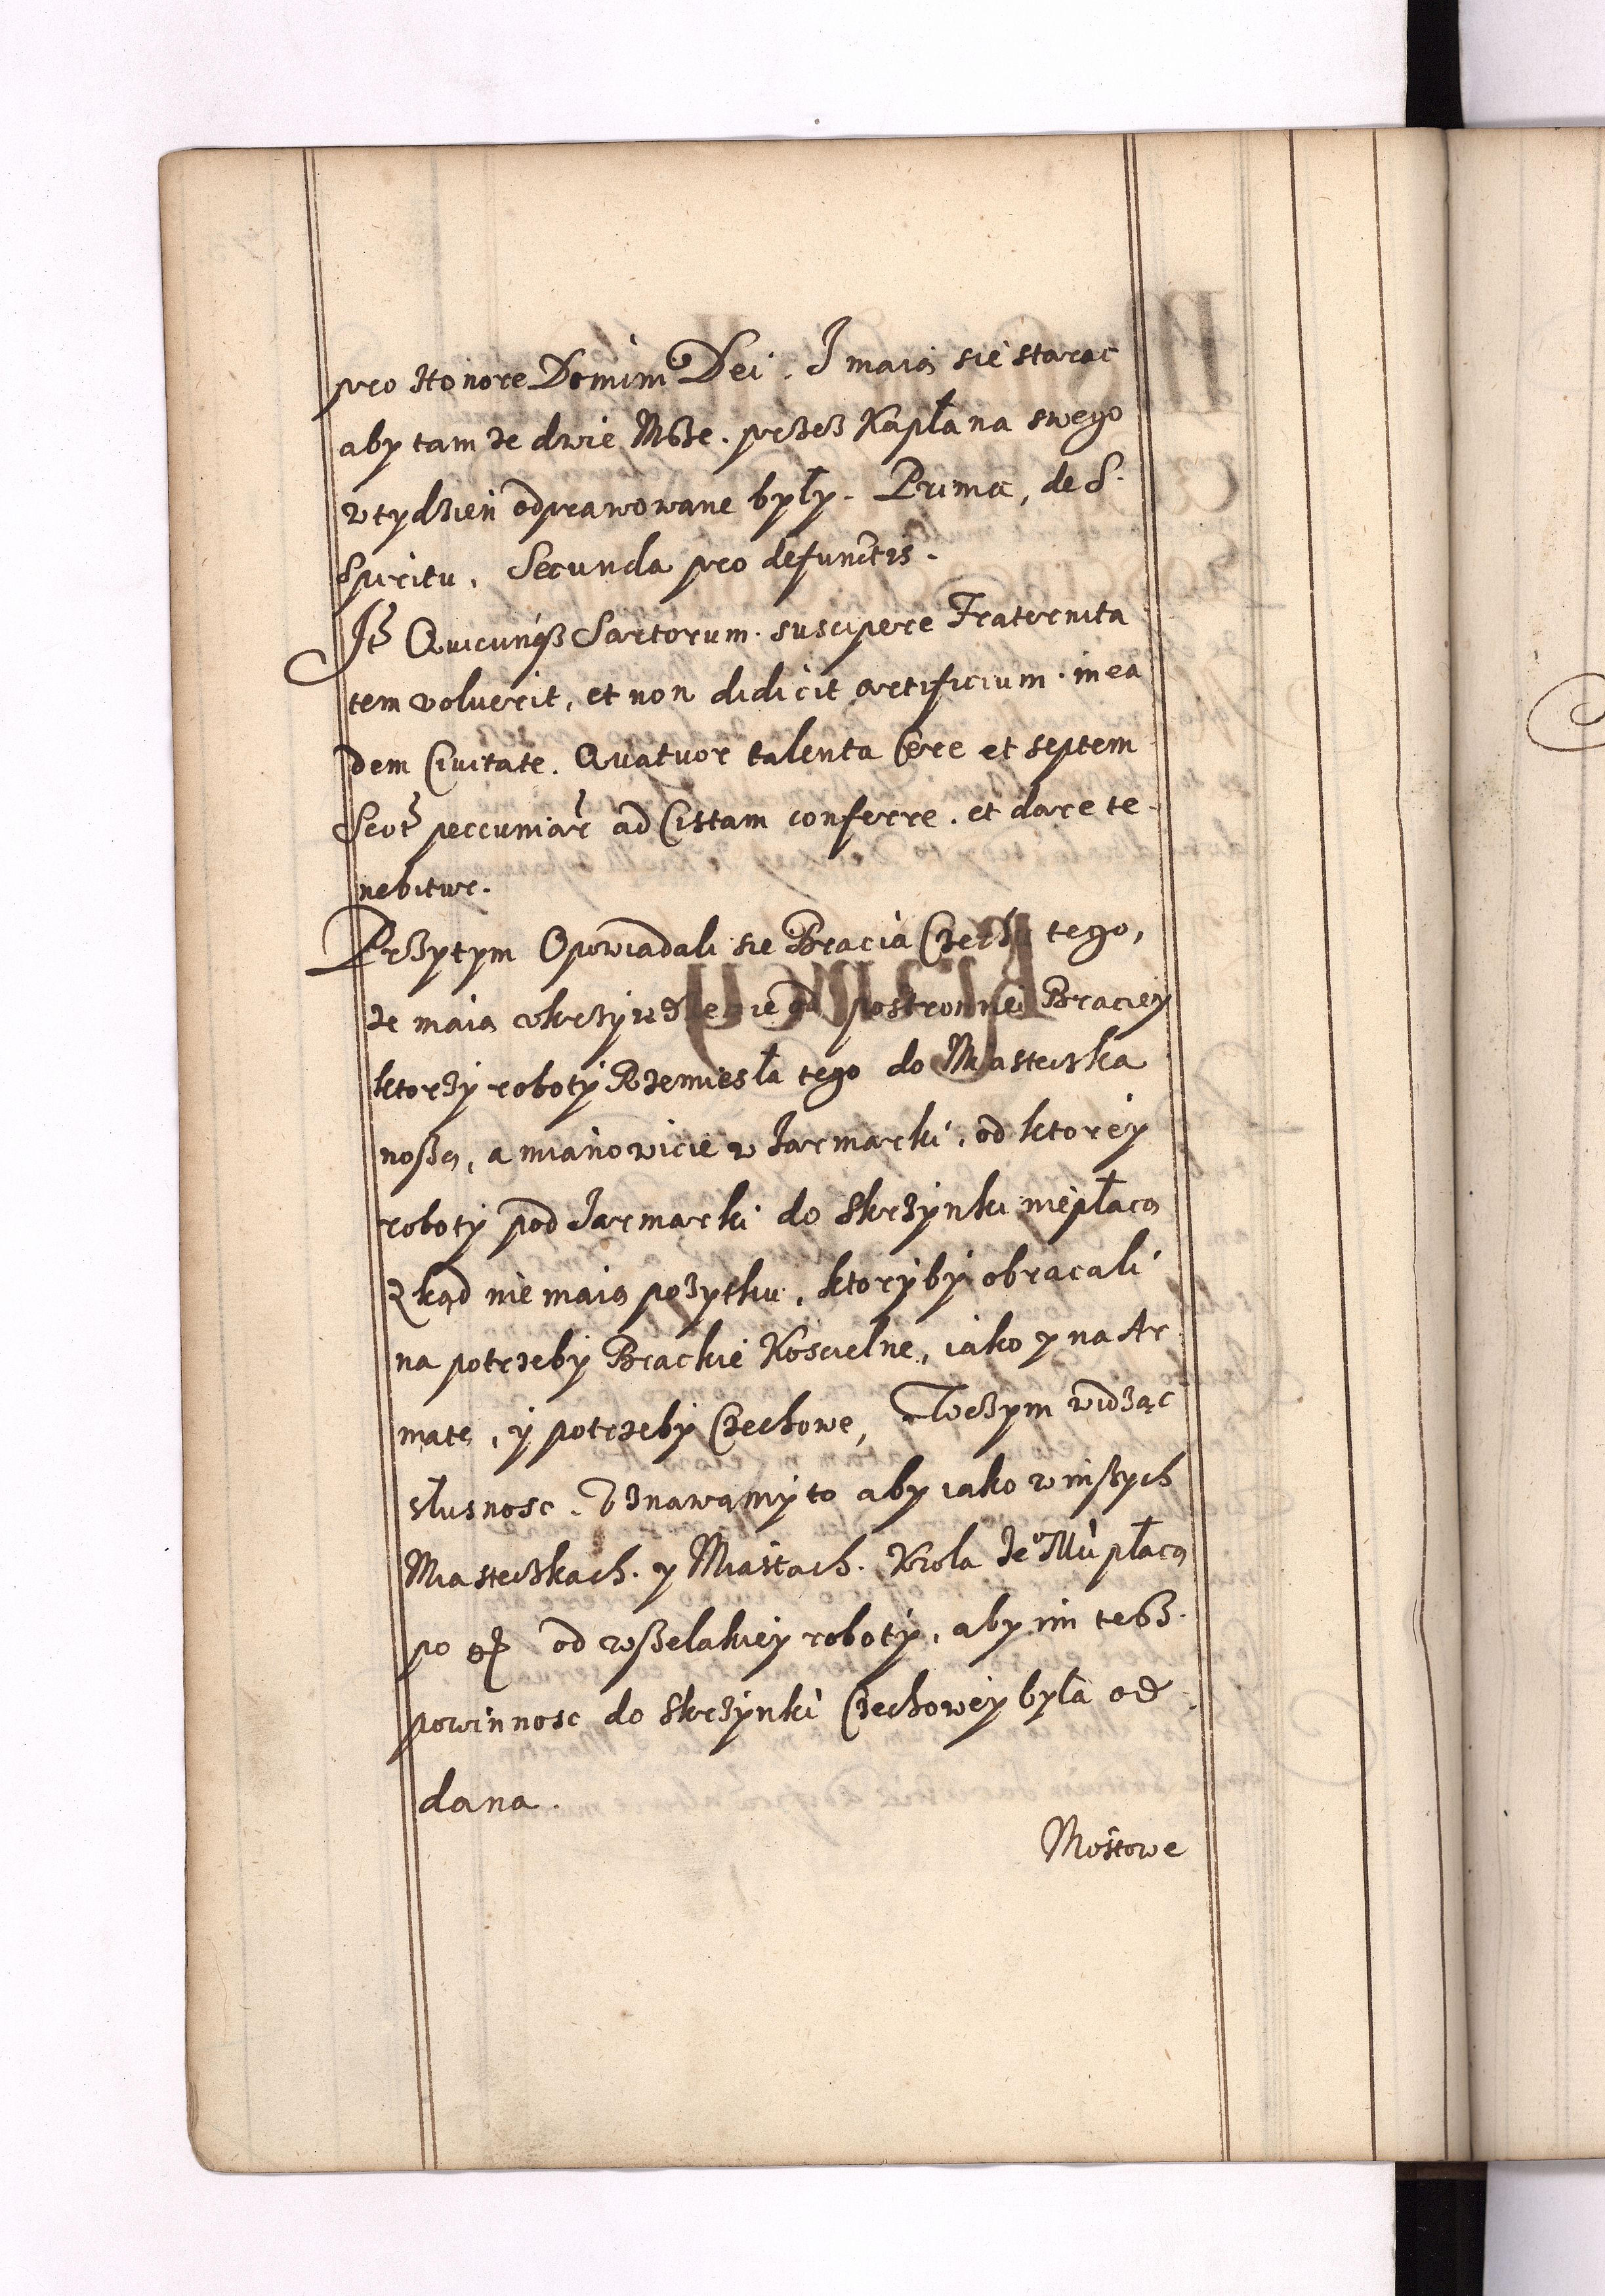 pro Honore Domini Dei. I maią sie starac
aby tam ze dwie Msze. przesz Kapłana swego
w tydzien odprawowane były. Prima, de S.
Spiritu, Secunda pro defunctis.
Jt Quicunqz Sartorum. suscipere Fraternita
tem voluerit, et non didicit artificium. in ea
dem Civitate. Quatuor talenta Cere et septem
Scot peccuniar ad Cistam conferre. et dare te-
nebitur.
Przytym Opowiadali sie Bracia Czechu tego,
ze maią vkrzywdzenie od postronnei Braciey
ktorzy roboty Rzemiesla tego do Miasteczka
noszą, a mianowicie w Jarmarki, od ktorey
roboty pod Jarmarki do Skrzynki niepłacą
Zkąd nie maią pozytku, ktoryby obracali
na potrzeby Brackie Koscielne, iako y na Ar
matę, y potrzeby Czechowe, Wczym widząc
słusnosc. Vznawamy to aby iako w inszych
Miasteczkach. y Miastach. Krola Je° Mci płacą
po od wszelakiey roboty, aby im tesz.
powinnosc do Skrzynki Czechowey była od
dana.
Mostowe